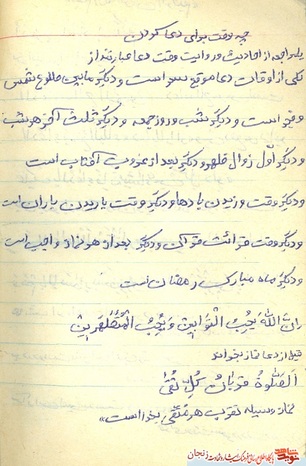 چه وقت برای دعا کردن
با مراجعه از احادیث و روایت وقت دعا عبارتند از
یکی از اوقات دعا موقع سحر است و دیگر مابین طلوع شمس
و فجر است و دیگر شب و روز جمعه و دیگر ثلث آخر هر شب
و دیگر اول زوال ظهر و دیگر بعد از غروب آفتاب است
و دیگر وقت وزیدن بادها و دیگر وقت باریدن باران است
و دیگر وقت قرائت قرآن و دیگر بعد از هر نماز واجب است
و دیگر ماه مبارک رمضان است
ان الله یحب التوابین و یحب المتطهرین
قبل از دعا نماز بخوانم
الصلوة قربان کل تقی
نماز وسیله تقرب هر متقی بخدا است»